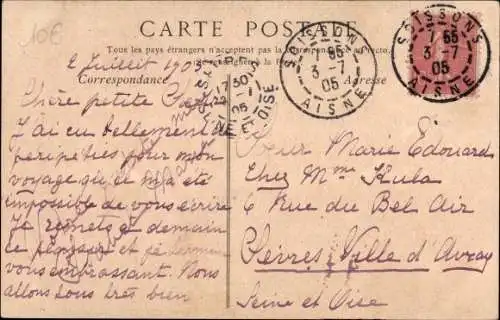 10€
CARTE POSTALE
Tous les pays étrangers n'acceptent pas la Correspondance au recto.
Correspondance
Adresse
SOISSONS
7 55
3 -7
05
AISNE
SOISSONS
7 55
3 -7
05
AISNE
OISE
2 Juillet 1905
Chère petite
J'ai eu tellement de
péripéties pour mon
voyage qu'il m'a été
impossible de vous écrire
Je remets à demain
ce plaisir et je termine en
vous embrassant. Nous
allons tous très bien
Sœur Marie Edouard
Chez Mme Kula
6 Rue du Bel Air
Sèvres, Ville d'Avray
Seine et Oise